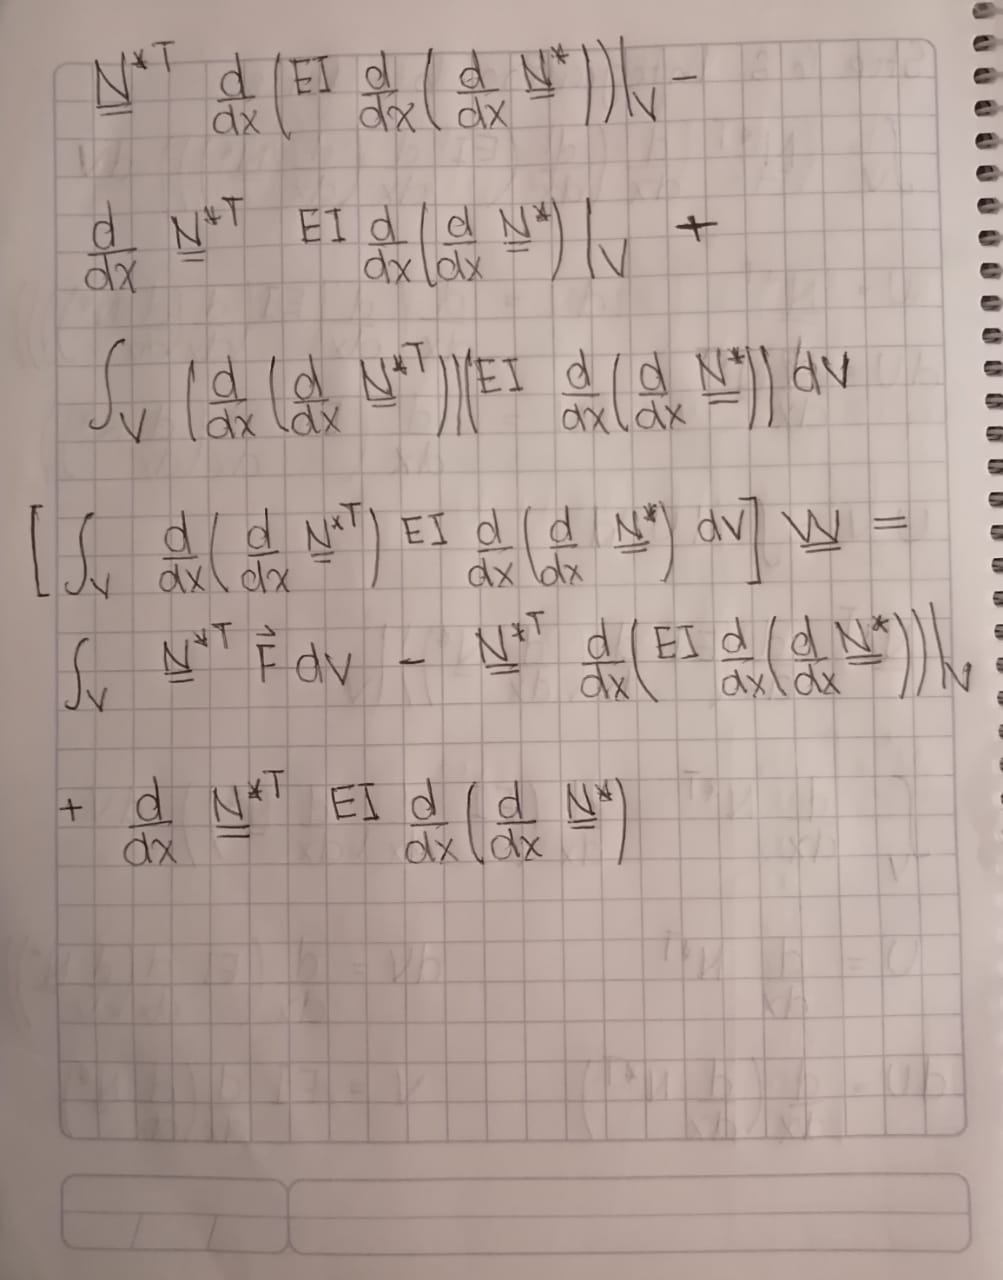 N*T d/dx (EI d/dx (d/dx N*))|V −
d/dx N*T EI d/dx (d/dx N*)|V +
∫V (d/dx (d/dx N*T))(EI d/dx (d/dx N*)) dV
[∫V d/dx (d/dx N*T) EI d/dx (d/dx N*) dV] W =
∫V N*T F⃗ dV − N*T d/dx (EI d/dx (d/dx N*))|V
+ d/dx N*T EI d/dx (d/dx N*)